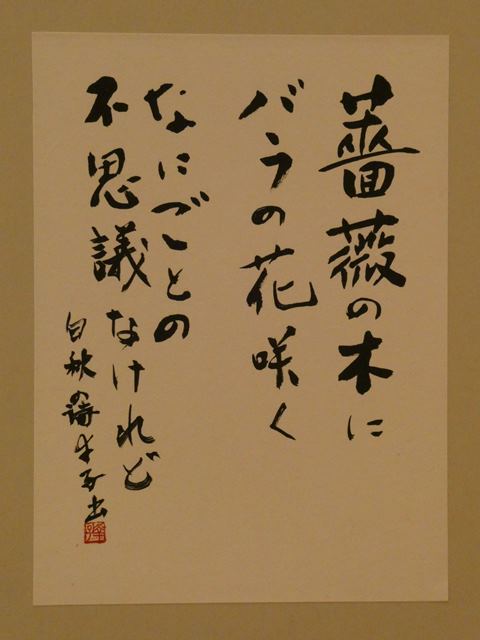 薔薇の木に
バラの花咲く
なにごとの
不思議なけれど
白秋の詩